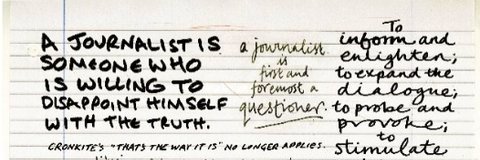 A JOURNALIST IS
SOMEONE WHO
IS WILLING TO
DISAPPOINT HIMSELF
WITH THE TRUTH.
a journalist
is
first and
foremost a
questioner.
To
inform and
enlighten;
to expand the
dialogue;
to probe and
provoke;
to
stimulate
CRONKITE'S "THATS THE WAY IT IS" NO LONGER APPLIES.